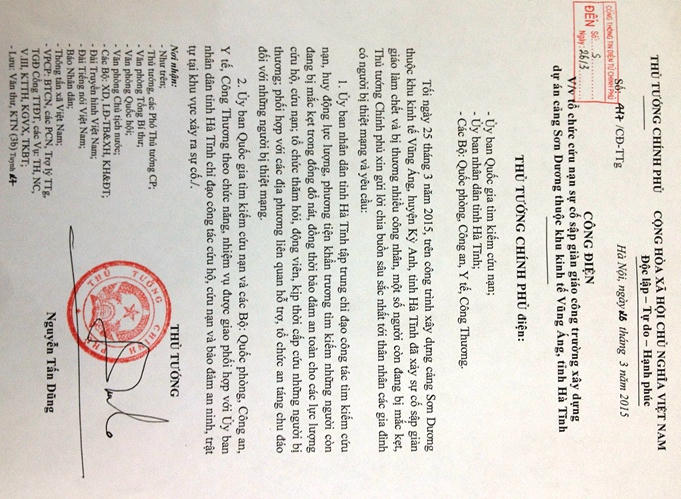 THỦ TƯỚNG CHÍNH PHỦ
CỘNG HÒA XÃ HỘI CHỦ NGHĨA VIỆT NAM
Độc lập – Tự do – Hạnh phúc
Số: /CĐ-TTg
Hà Nội, ngày 26 tháng 3 năm 2015
CỔNG THÔNG TIN ĐIỆN TỬ CHÍNH PHỦ
ĐẾN Số: S
Ngày: 26/3
CÔNG ĐIỆN
V/v tổ chức cứu nạn sự cố sập giàn giáo công trường xây dựng
dự án cảng Sơn Dương thuộc khu kinh tế Vũng Áng, tỉnh Hà Tĩnh
THỦ TƯỚNG CHÍNH PHỦ điện:
- Ủy ban Quốc gia tìm kiếm cứu nạn;
- Ủy ban nhân dân tỉnh Hà Tĩnh;
- Các Bộ: Quốc phòng, Công an, Y tế, Công Thương.
Tối ngày 25 tháng 3 năm 2015, trên công trình xây dựng cảng Sơn Dương
thuộc khu kinh tế Vũng Áng, huyện Kỳ Anh, tỉnh Hà Tĩnh đã xảy sự cố sập giàn
giáo làm chết và bị thương nhiều công nhân, một số người còn đang bị mắc kẹt,
Thủ tướng Chính phủ xin gửi lời chia buồn sâu sắc nhất tới thân nhân các gia đình
có người bị thiệt mạng và yêu cầu:
1. Ủy ban nhân dân tỉnh Hà Tĩnh tập trung chỉ đạo công tác tìm kiếm cứu
nạn, huy động lực lượng, phương tiện khẩn trương tìm kiếm những người còn
đang bị mắc kẹt trong đống đổ nát, đồng thời bảo đảm an toàn cho các lực lượng
cứu hộ, cứu nạn; tổ chức thăm hỏi, động viên, kịp thời cấp cứu những người bị
thương; phối hợp với các địa phương liên quan hỗ trợ, tổ chức an táng chu đáo
đối với những người bị thiệt mạng.
2. Ủy ban Quốc gia tìm kiếm cứu nạn và các Bộ: Quốc phòng, Công an,
Y tế, Công Thương theo chức năng, nhiệm vụ được giao phối hợp với Ủy ban
nhân dân tỉnh Hà Tĩnh chỉ đạo công tác cứu hộ, cứu nạn và bảo đảm an ninh, trật
tự tại khu vực xảy ra sự cố./.
Nơi nhận:
- Như trên;
- Thủ tướng, các Phó Thủ tướng CP;
- Văn phòng Tổng Bí thư;
- Văn phòng Quốc hội;
- Văn phòng Chủ tịch nước;
- Các Bộ: XD, LĐ-TB&XH, KH&ĐT;
- Đài Truyền hình Việt Nam;
- Đài Tiếng nói Việt Nam;
- Báo Nhân dân;
- Thông tấn xã Việt Nam;
- VPCP: BTCN, các PCN, Trợ lý TTg,
TGĐ Cổng TTĐT, các Vụ: TH, NC,
V.III, KTTH, KGVX, TKBT;
- Lưu: Văn thư, KTN (3b)
THỦ TƯỚNG
THỦ TƯỚNG CHÍNH PHỦ
Nguyễn Tấn Dũng